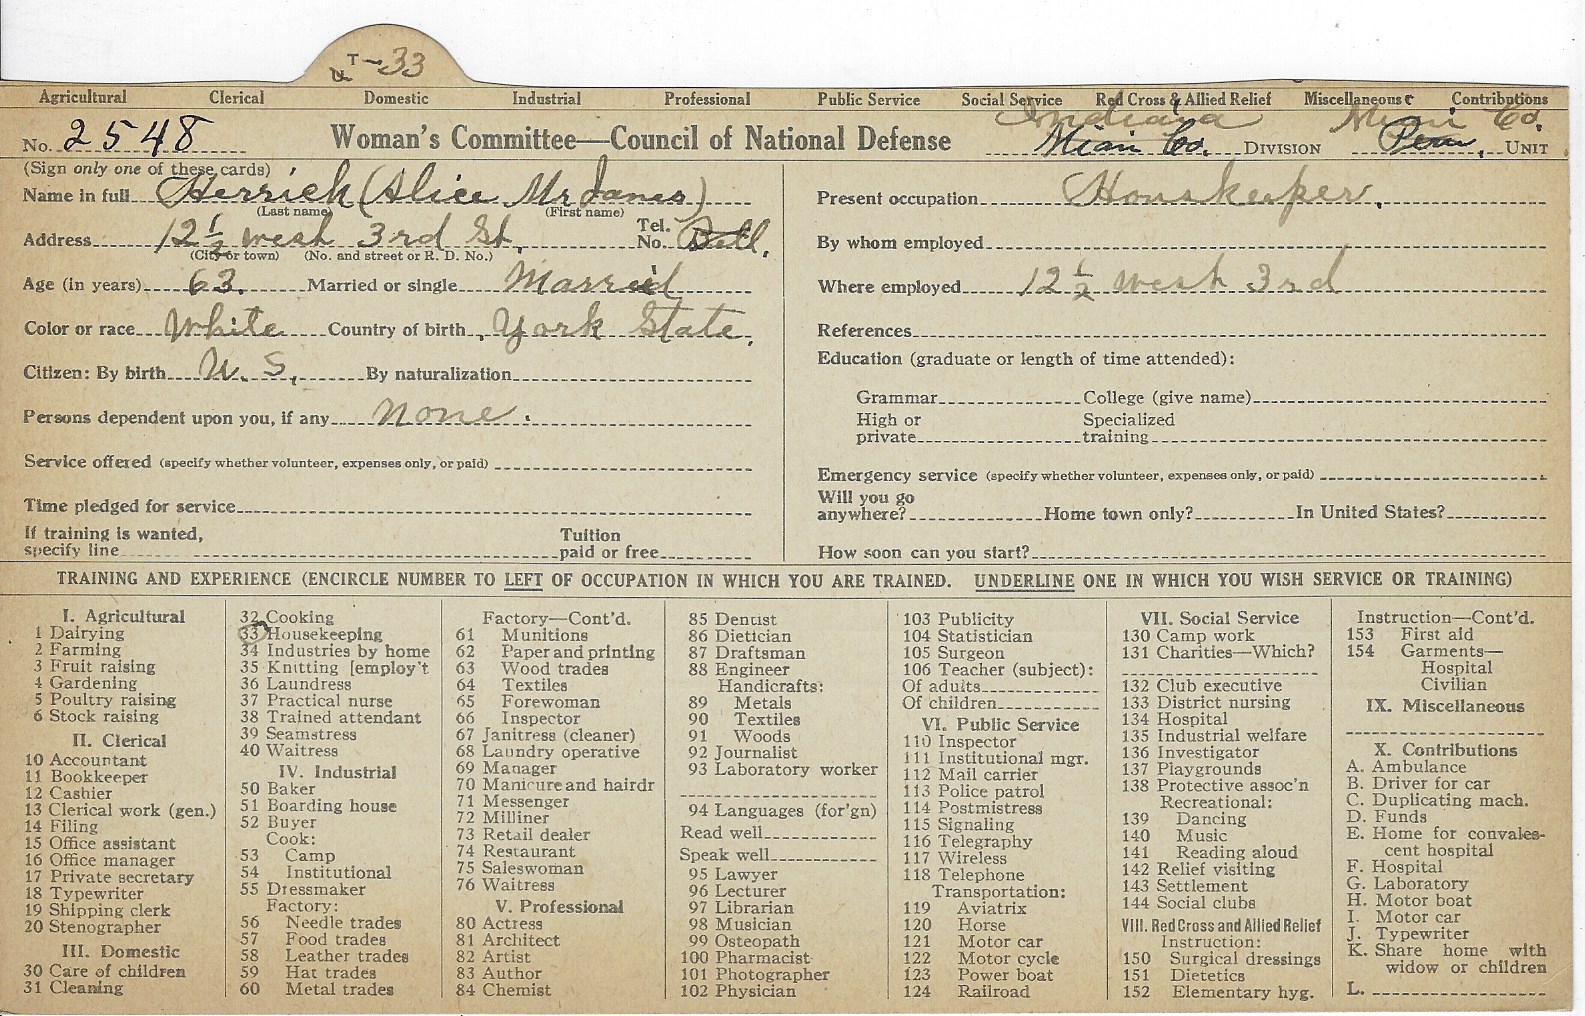 T-33
Agricultural Clerical Domestic Industrial Professional Public Service Social Service Red Cross & Allied Relief Miscellaneous Contributions
Indiana Miami Co.
No. 2548 Woman's Committee—Council of National Defense Miami Co. DIVISION Peru, UNIT
(Sign only one of these cards)
Name in full Herrick (Alice Mr James)
(Last name) (First name)
Address 12 1/2 west 3rd St. Tel. No. Bell.
(City or town) (No. and street or R. D. No.)
Age (in years) 63. Married or single Married
Color or race White Country of birth York State.
Citizen: By birth U. S. By naturalization
Persons dependent upon you, if any none.
Service offered (specify whether volunteer, expenses only, or paid)
Time pledged for service
If training is wanted, specify line Tuition paid or free
Present occupation Houskeeper.
By whom employed
Where employed 12 1/2 west 3rd
References
Education (graduate or length of time attended):
Grammar College (give name)
High or private Specialized training
Emergency service (specify whether volunteer, expenses only, or paid)
Will you go anywhere? Home town only? In United States?
How soon can you start?
TRAINING AND EXPERIENCE (ENCIRCLE NUMBER TO LEFT OF OCCUPATION IN WHICH YOU ARE TRAINED. UNDERLINE ONE IN WHICH YOU WISH SERVICE OR TRAINING)
I. Agricultural
1 Dairying
2 Farming
3 Fruit raising
4 Gardening
5 Poultry raising
6 Stock raising
II. Clerical
10 Accountant
11 Bookkeeper
12 Cashier
13 Clerical work (gen.)
14 Filing
15 Office assistant
16 Office manager
17 Private secretary
18 Typewriter
19 Shipping clerk
20 Stenographer
III. Domestic
30 Care of children
31 Cleaning
32 Cooking
33 Housekeeping
34 Industries by home
35 Knitting [employ't
36 Laundress
37 Practical nurse
38 Trained attendant
39 Seamstress
40 Waitress
IV. Industrial
50 Baker
51 Boarding house
52 Buyer
Cook:
53 Camp
54 Institutional
55 Dressmaker
Factory:
56 Needle trades
57 Food trades
58 Leather trades
59 Hat trades
60 Metal trades
Factory—Cont'd.
61 Munitions
62 Paper and printing
63 Wood trades
64 Textiles
65 Forewoman
66 Inspector
67 Janitress (cleaner)
68 Laundry operative
69 Manager
70 Manicure and hairdr
71 Messenger
72 Milliner
73 Retail dealer
74 Restaurant
75 Saleswoman
76 Waitress
V. Professional
80 Actress
81 Architect
82 Artist
83 Author
84 Chemist
85 Dentist
86 Dietician
87 Draftsman
88 Engineer
Handicrafts:
89 Metals
90 Textiles
91 Woods
92 Journalist
93 Laboratory worker
94 Languages (for'gn)
Read well
Speak well
95 Lawyer
96 Lecturer
97 Librarian
98 Musician
99 Osteopath
100 Pharmacist
101 Photographer
102 Physician
103 Publicity
104 Statistician
105 Surgeon
106 Teacher (subject):
Of adults
Of children
VI. Public Service
110 Inspector
111 Institutional mgr.
112 Mail carrier
113 Police patrol
114 Postmistress
115 Signaling
116 Telegraphy
117 Wireless
118 Telephone
Transportation:
119 Aviatrix
120 Horse
121 Motor car
122 Motor cycle
123 Power boat
124 Railroad
VII. Social Service
130 Camp work
131 Charities—Which?
132 Club executive
133 District nursing
134 Hospital
135 Industrial welfare
136 Investigator
137 Playgrounds
138 Protective assoc'n
Recreational:
139 Dancing
140 Music
141 Reading aloud
142 Relief visiting
143 Settlement
144 Social clubs
VIII. Red Cross and Allied Relief
Instruction:
150 Surgical dressings
151 Dietetics
152 Elementary hyg.
Instruction—Cont'd.
153 First aid
154 Garments—
Hospital
Civilian
IX. Miscellaneous
X. Contributions
A. Ambulance
B. Driver for car
C. Duplicating mach.
D. Funds
E. Home for convales-
cent hospital
F. Hospital
G. Laboratory
H. Motor boat
I. Motor car
J. Typewriter
K. Share home with
widow or children
L.